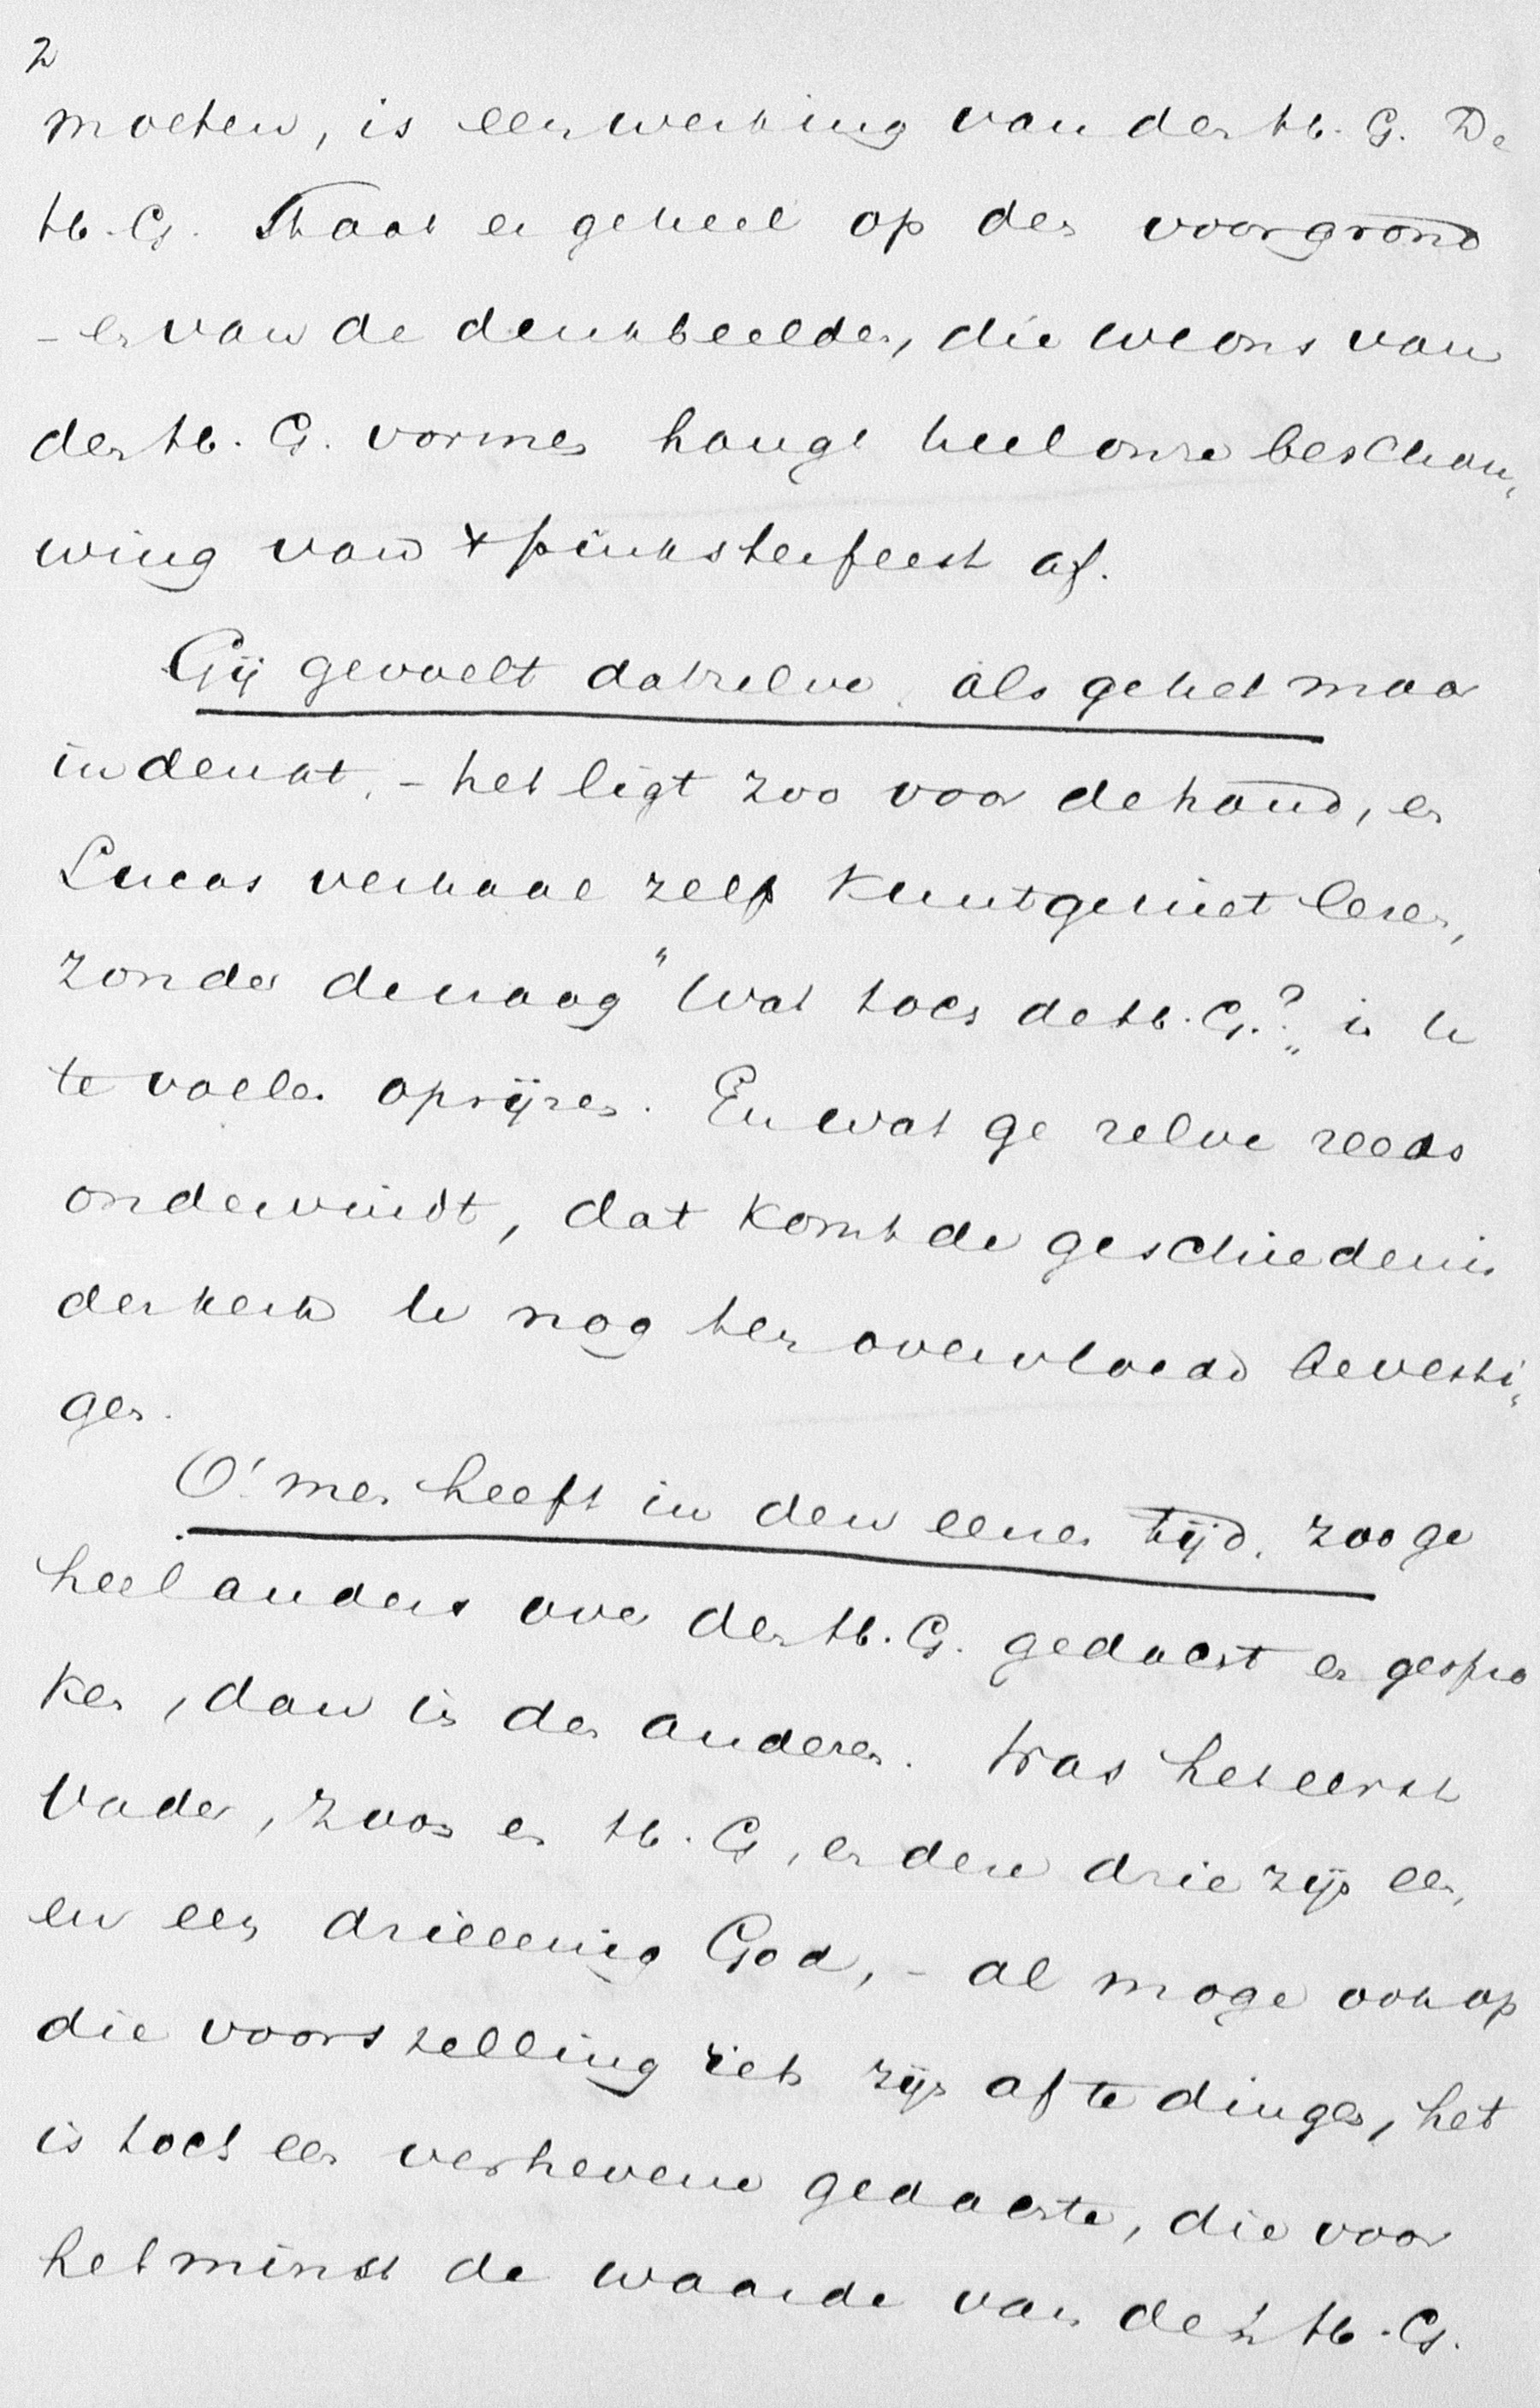 2
moeten, is een werking van den H. G. De
H. G. staat er geheel op den voorgrond
- en van de denkbeelden, die we ons van
den H. G. vormen hangt heel onze beschou„
wing van 't pinksterfeest af.
Gij gevoelt datzelve, als ge het maar
indenkt, - het ligt zoo voor de hand, en
Lucas verhaal zelf kunt ge niet lezen,
zonder de vraag "Wat toch de H. G.?„ in U
te voelen oprijzen. En wat ge zelve reeds
ondervindt, dat komt de geschiedenis
der kerk U nog ten overvloede bevesti„
gen.
O! men heeft in den eenen tijd, zoo ge
heel anders over den H. G. gedacht en gespro
ken, dan in den anderen. Was het eerst
Vader, Zoon en H. G, en deze drie zijn een,
en een drieeenig God, - al moge ook op
die voorstelling iets zijn af te dingen, het
is toch een verhevene gedachte, die voor
het minst de waarde van den H. G.